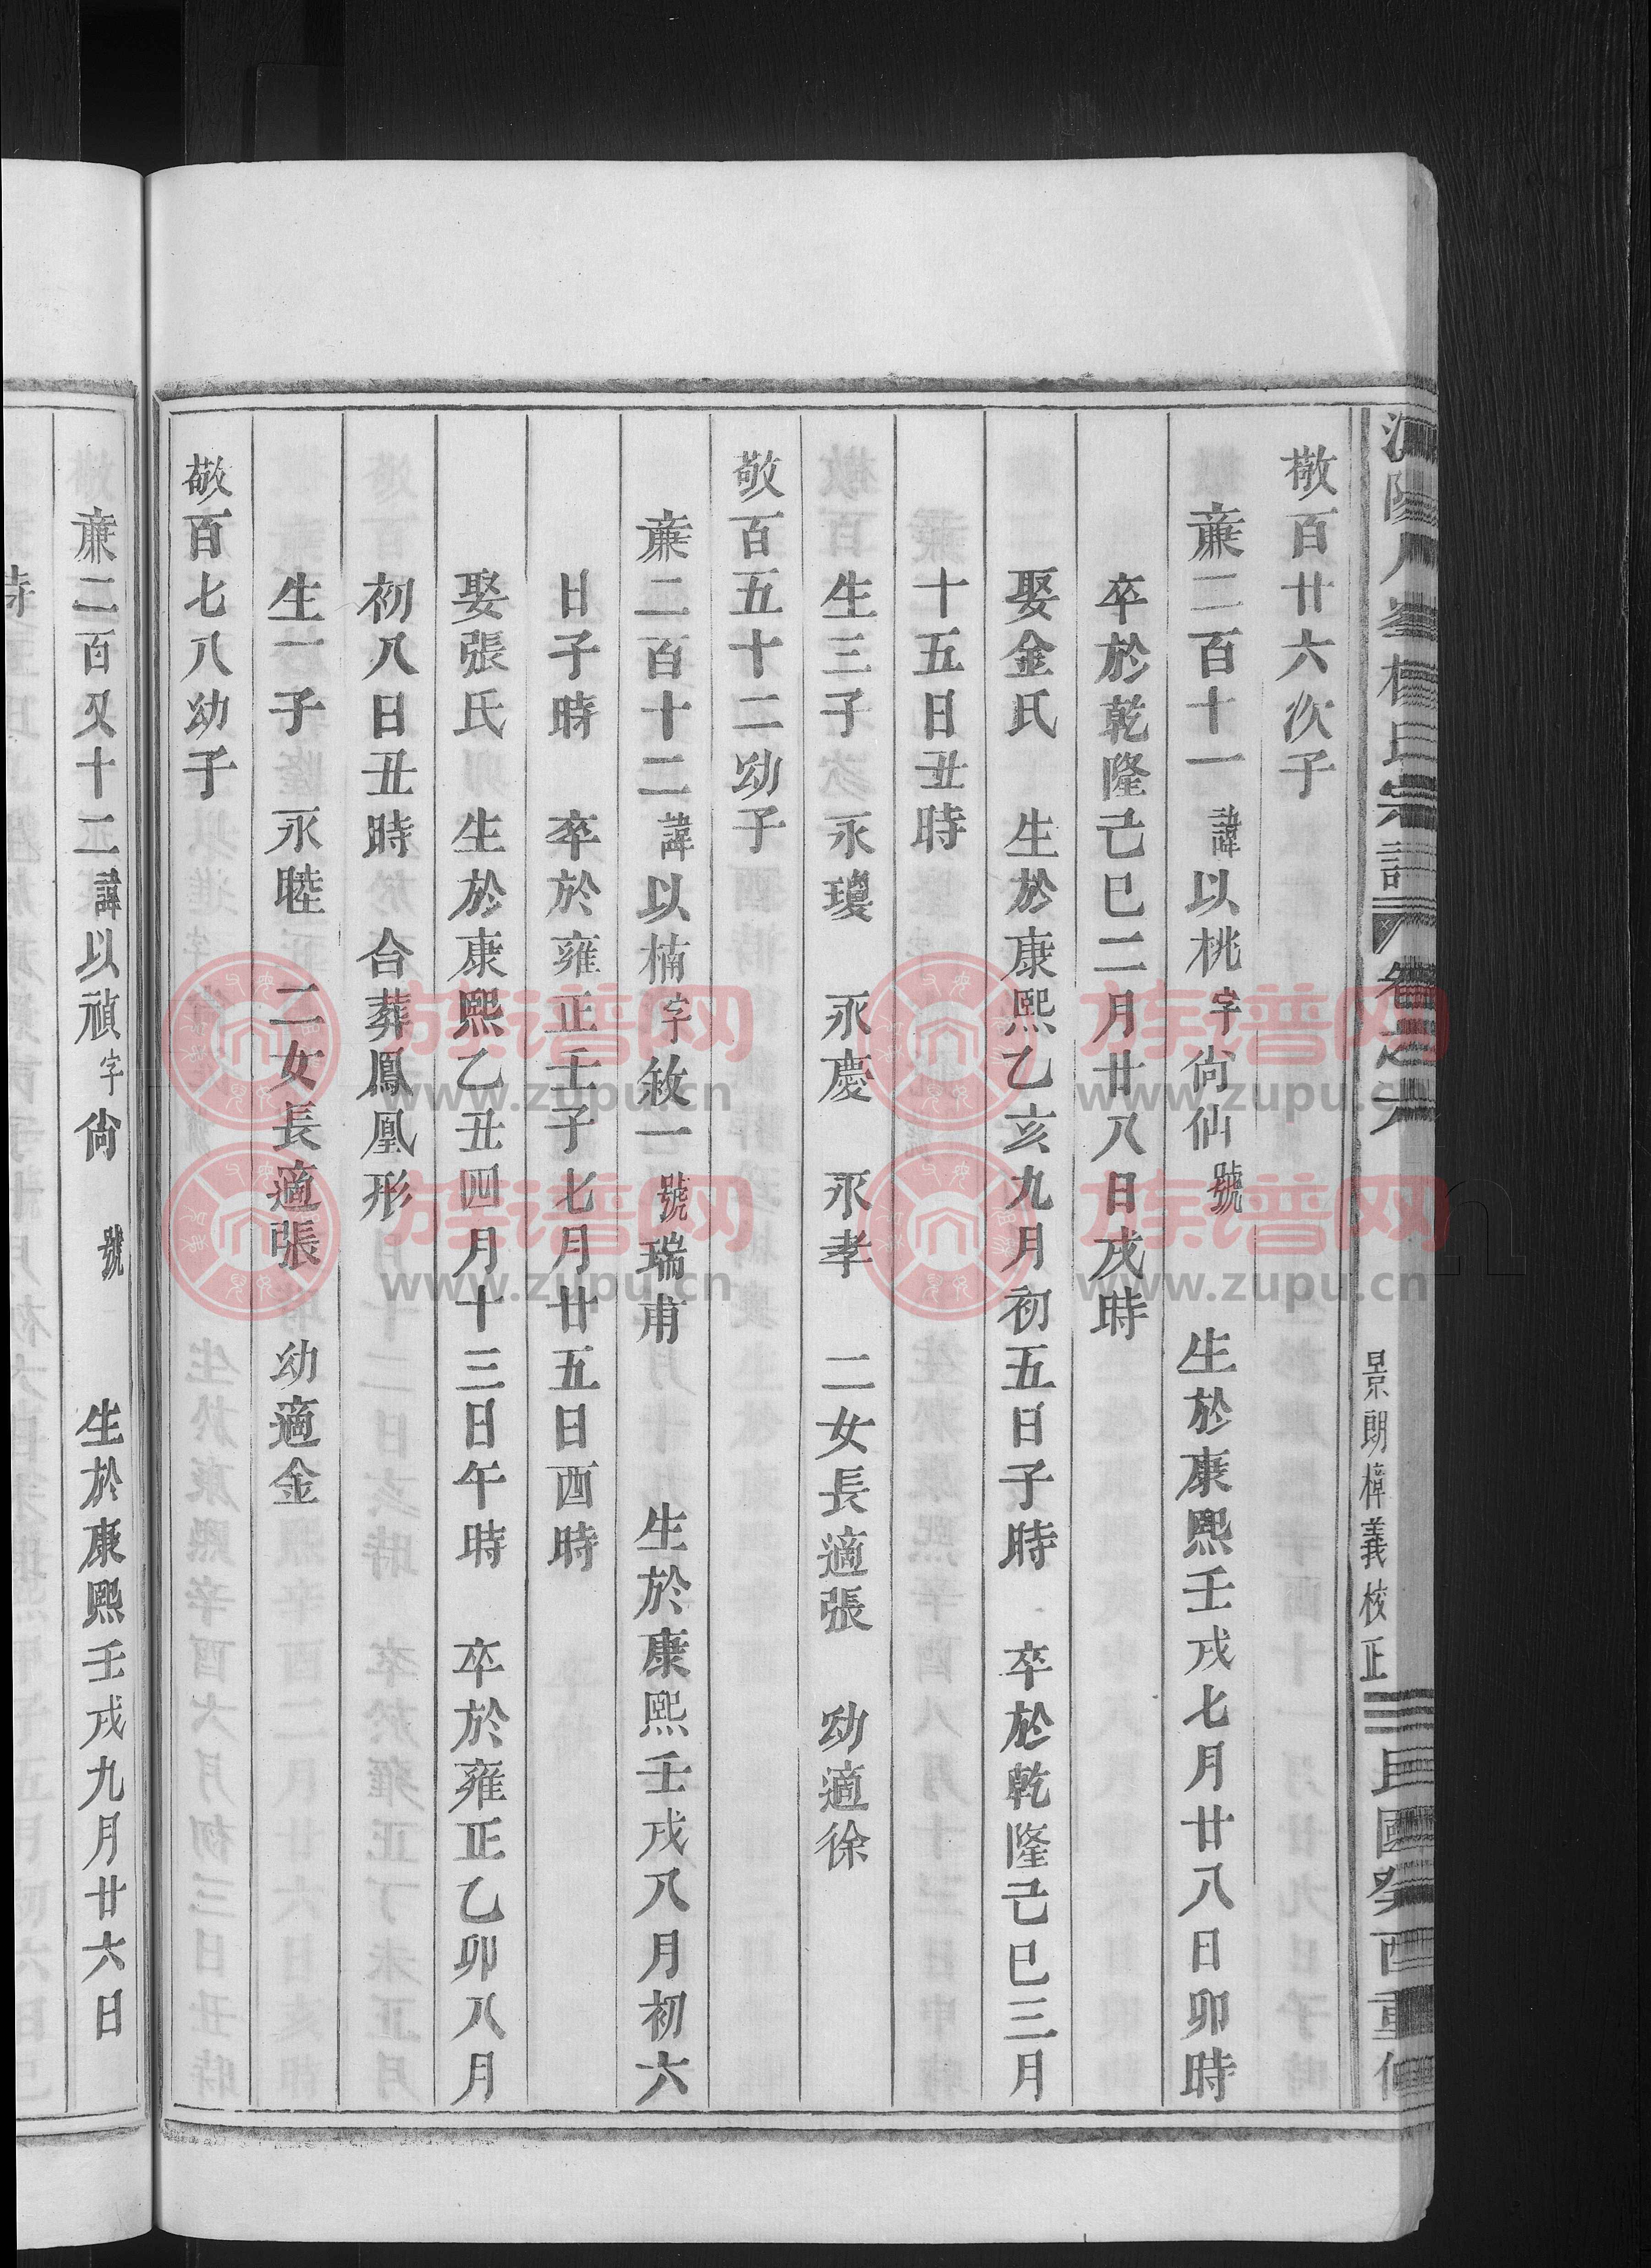 敬百廿六次子
亷二百十一諱以桃字尙仙號　生於康熙壬戌七月廿八日卯時
卒於乾隆己巳二月廿八日戌時
娶金氏　生於康熙乙亥九月初五日子時　卒於乾隆己巳三月
十五日丑時
生三子　永瓊　永慶　永孝　二女長適張　幼適徐
敬百五十二幼子
亷二百十二諱以楠字敘一號瑞甫　生於康熙壬戌八月初六
日子時　卒於雍正壬子七月廿五日酉時
娶張氏　生於康熙乙丑四月十三日午時　卒於雍正乙卯八月
初八日丑時　合葬鳳凰形
生一子　永睦　二女長適張　幼適金
敬百七八幼子
亷二百又十二諱以禎字尙　號　生於康熙壬戌九月廿六日
時
氏宗譜　卷之六　景朗樟義校正　民國癸酉重修
族谱网
www.zupu.cn
族谱网
www.zupu.cn
族谱网
www.zupu.cn
族谱网
www.zupu.cn